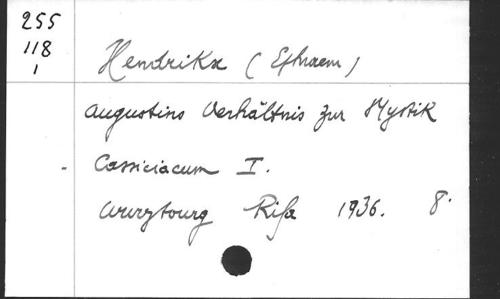 255
118
1
Hendrikx (Ephraem)
Augustins Verhältnis zur Mystik
Cassiciacum I.
Wurzbourg Rita 1936. 8°